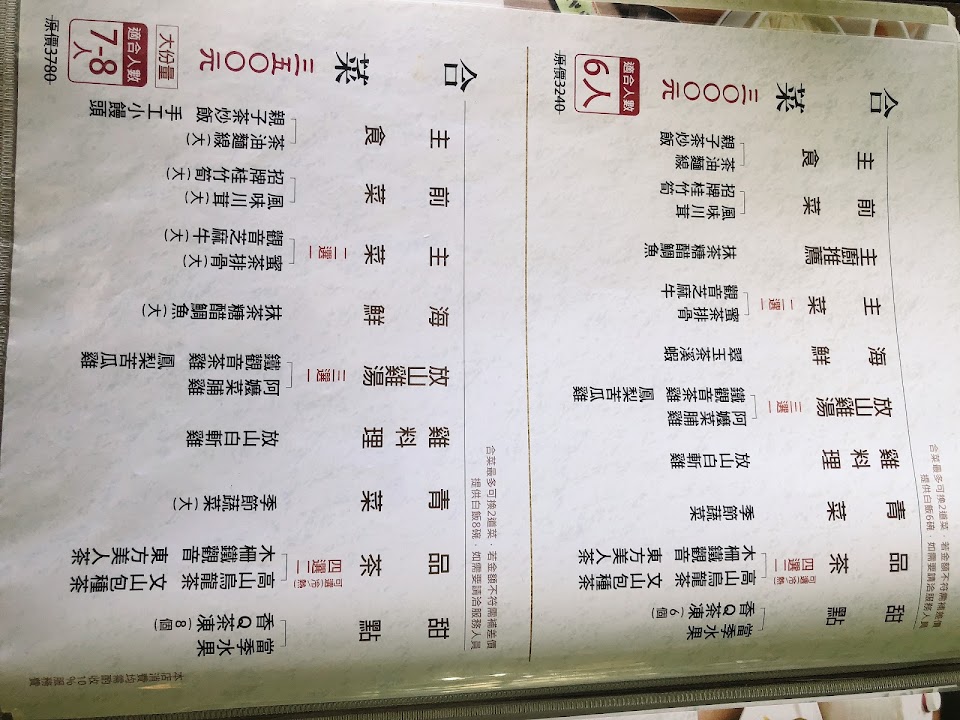 合菜
三〇〇〇元
適合人數
6人
原價3240
主食
親子茶炒飯
茶油麵線
前菜
招牌桂竹筍
風味川茸
主廚推薦
抹茶糖醋鯛魚
主菜
二選一
觀音芝麻牛
蜜茶排骨
海鮮
翠玉茶溪蝦
放山雞湯
三選一
鐵觀音茶雞
鳳梨苦瓜雞
阿嬤菜脯雞
雞料理
放山白斬雞
青菜
季節蔬菜
品茶
四選一
可選冷/熱
木柵鐵觀音
東方美人茶
高山烏龍茶
文山包種茶
甜點
香Q茶凍(6個)
當季水果
合菜最多可換2道菜，若金額不符需補差價
提供白飯6碗，如需要請洽服務人員
合菜
三五〇〇元
大份量
適合人數
7-8人
原價3780
主食
親子茶炒飯
手工小饅頭
茶油麵線(大)
前菜
招牌桂竹筍(大)
風味川茸(大)
主菜
二選一
觀音芝麻牛(大)
蜜茶排骨(大)
海鮮
抹茶糖醋鯛魚(大)
放山雞湯
三選一
鐵觀音茶雞
鳳梨苦瓜雞
阿嬤菜脯雞
雞料理
放山白斬雞
青菜
季節蔬菜(大)
品茶
四選一
可選冷/熱
木柵鐵觀音
東方美人茶
高山烏龍茶
文山包種茶
甜點
香Q茶凍(8個)
當季水果
合菜最多可換2道菜，若金額不符需補差價
提供白飯8碗，如需要請洽服務人員
本店消費均需酌收10%服務費